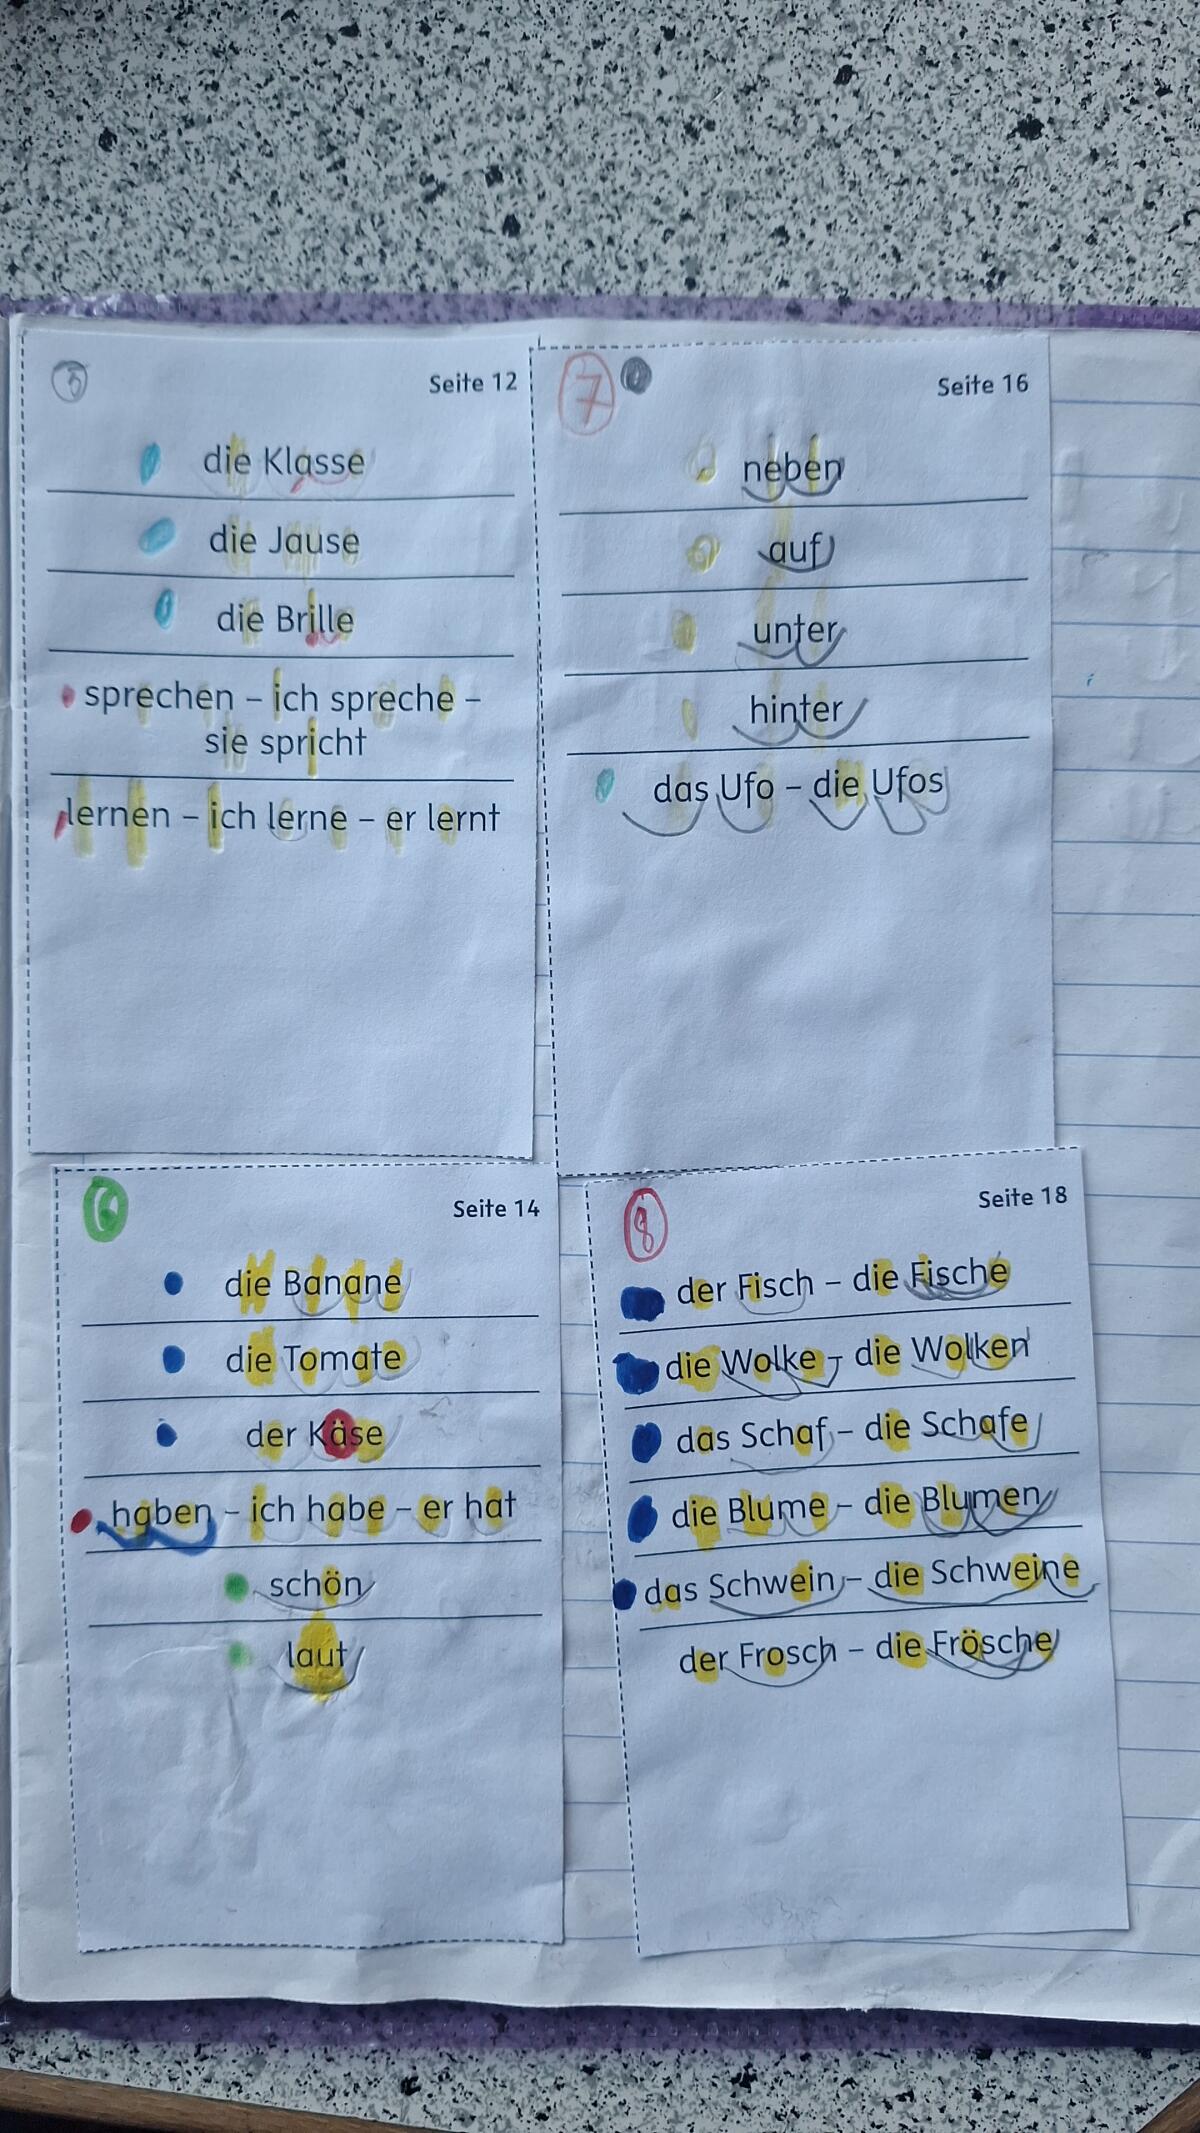 5
Seite 12
die Klasse
die Jause
die Brille
sprechen – ich spreche –
sie spricht
lernen – ich lerne – er lernt
7
Seite 16
neben
auf
unter
hinter
das Ufo – die Ufos
6
Seite 14
die Banane
die Tomate
der Käse
haben – ich habe – er hat
schön
laut
8
Seite 18
der Fisch – die Fische
die Wolke – die Wolken
das Schaf – die Schafe
die Blume – die Blumen
das Schwein – die Schweine
der Frosch – die Frösche